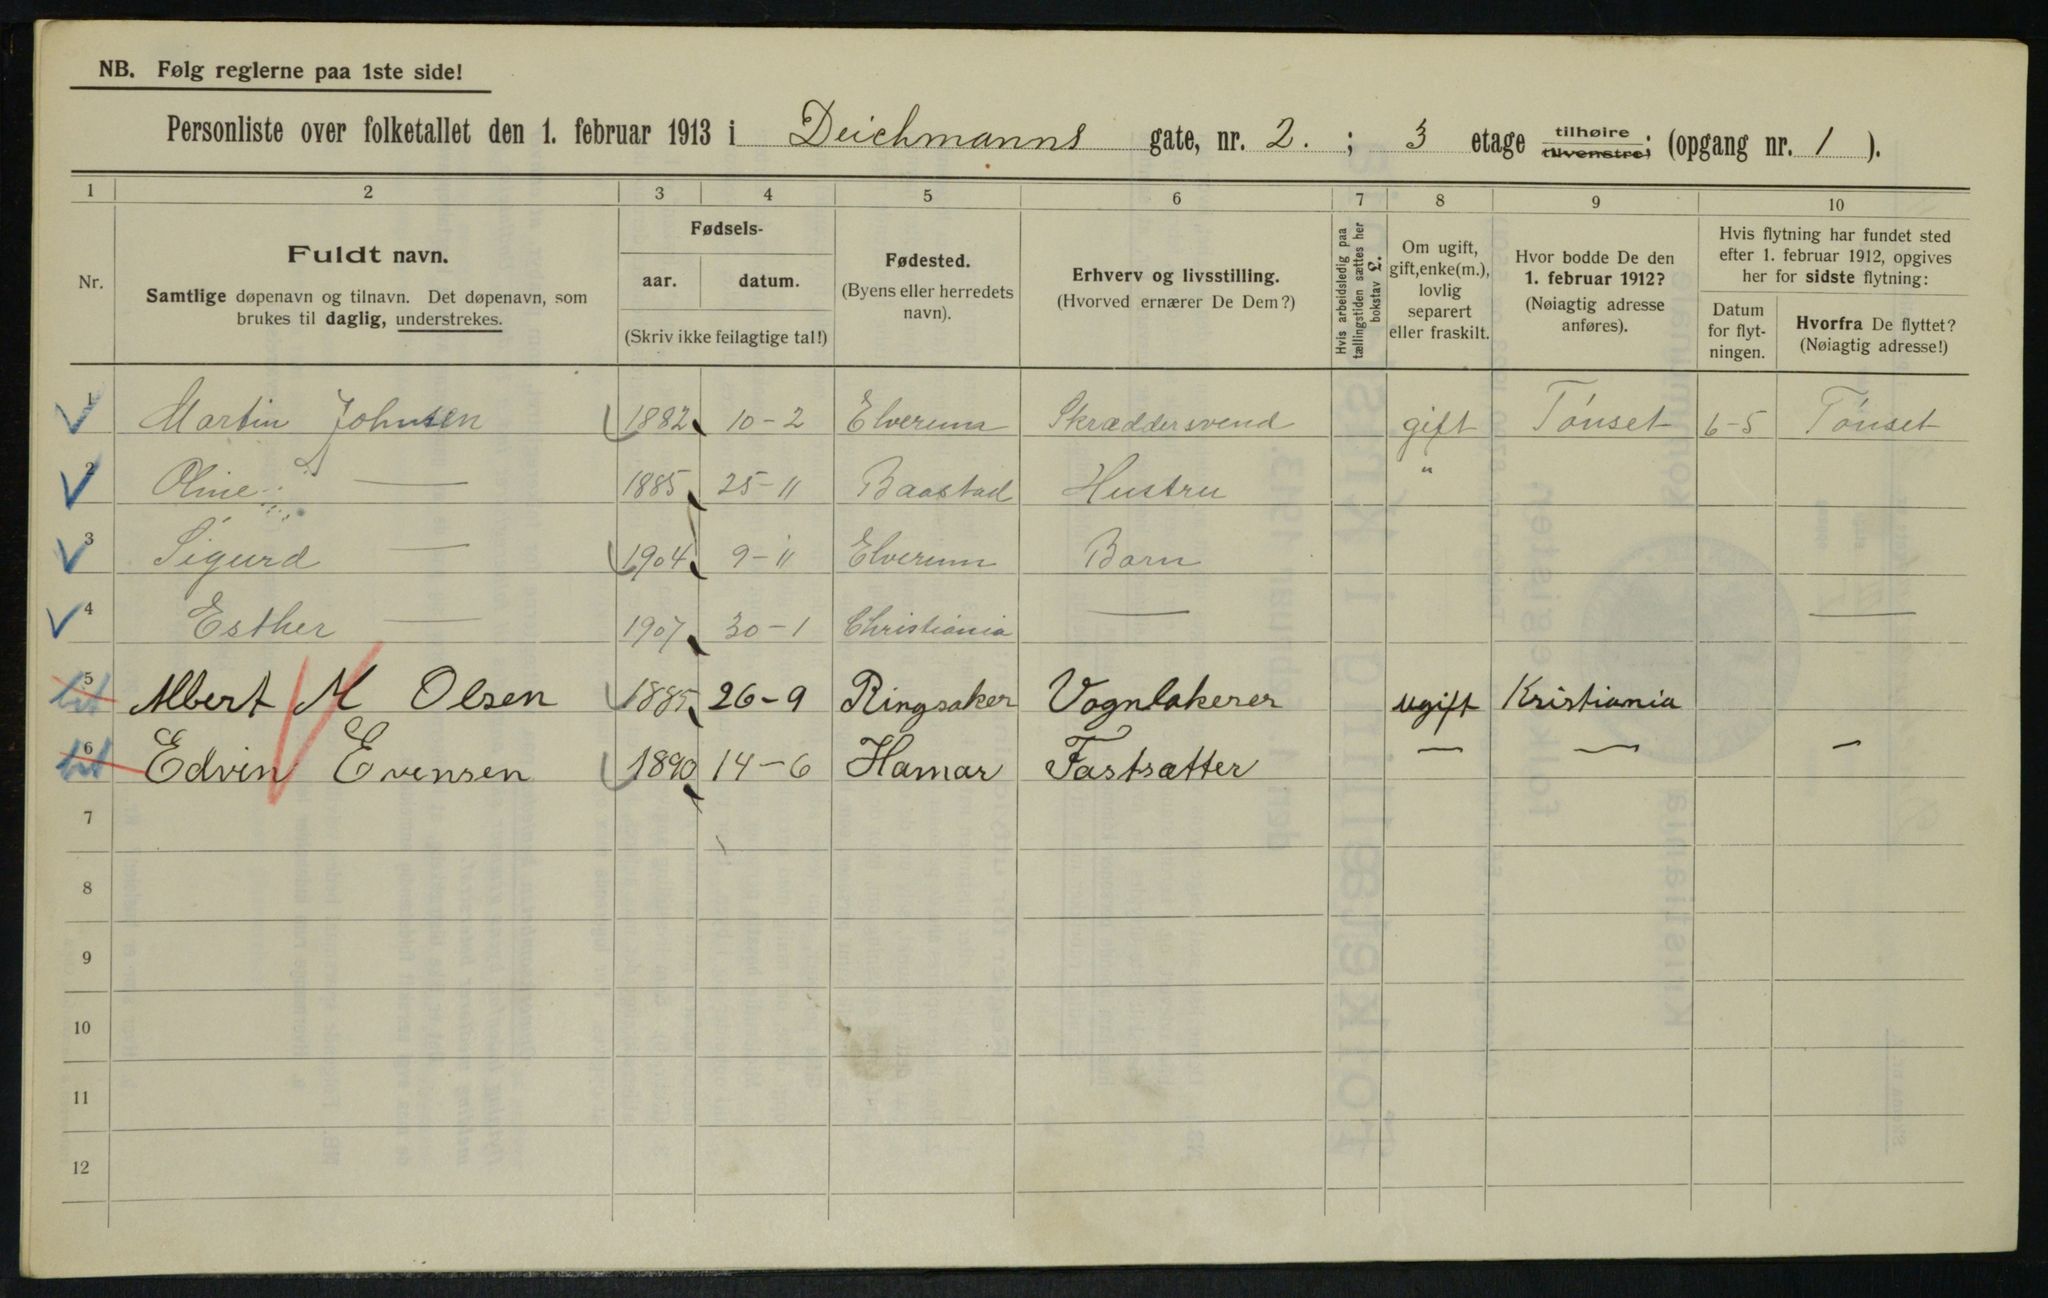 NB. Følg reglerne paa 1ste side!
Personliste over folketallet den 1. februar 1913 i Deichmanns gate, nr. 2. ; 3 etage tilhøire tilvenstre; (opgang nr. 1 ).
1 2 3 4 5 6 7 8 9 10
Nr.
Fuldt navn.
Samtlige døpenavn og tilnavn. Det døpenavn, som
brukes til daglig, understrekes.
Fødsels-
aar. datum.
(Skriv ikke feilagtige tal!)
Fødested.
(Byens eller herredets
navn).
Erhverv og livsstilling.
(Hvorved ernærer De Dem?)
Hvis arbeidsledig paa
tællingstiden sættes her
bokstav L.
Om ugift,
gift, enke(m.),
lovlig
separert
eller fraskilt.
Hvor bodde De den
1. februar 1912?
(Nøiagtig adresse
anføres).
Hvis flytning har fundet sted
efter 1. februar 1912, opgives
her for sidste flytning:
Datum
for flyt-
ningen.
Hvorfra De flyttet?
(Nøiagtig adresse!)
1 Martin Johnsen 1882 10-2 Elverum Skræddersvend gift Tønset 6-5 Tønset
2 Oline — 1885 25-11 Baastad Hustru "
3 Sigurd — 1904 9-11 Elverum Barn
4 Esther — 1907 30-1 Christiania — —
5 Albert M Olsen 1885 26-9 Ringsaker Vognlakerer ugift Kristiania
6 Edvin Evensen 1890 14-6 Hamar Fastsætter — — —
7
8
9
10
11
12